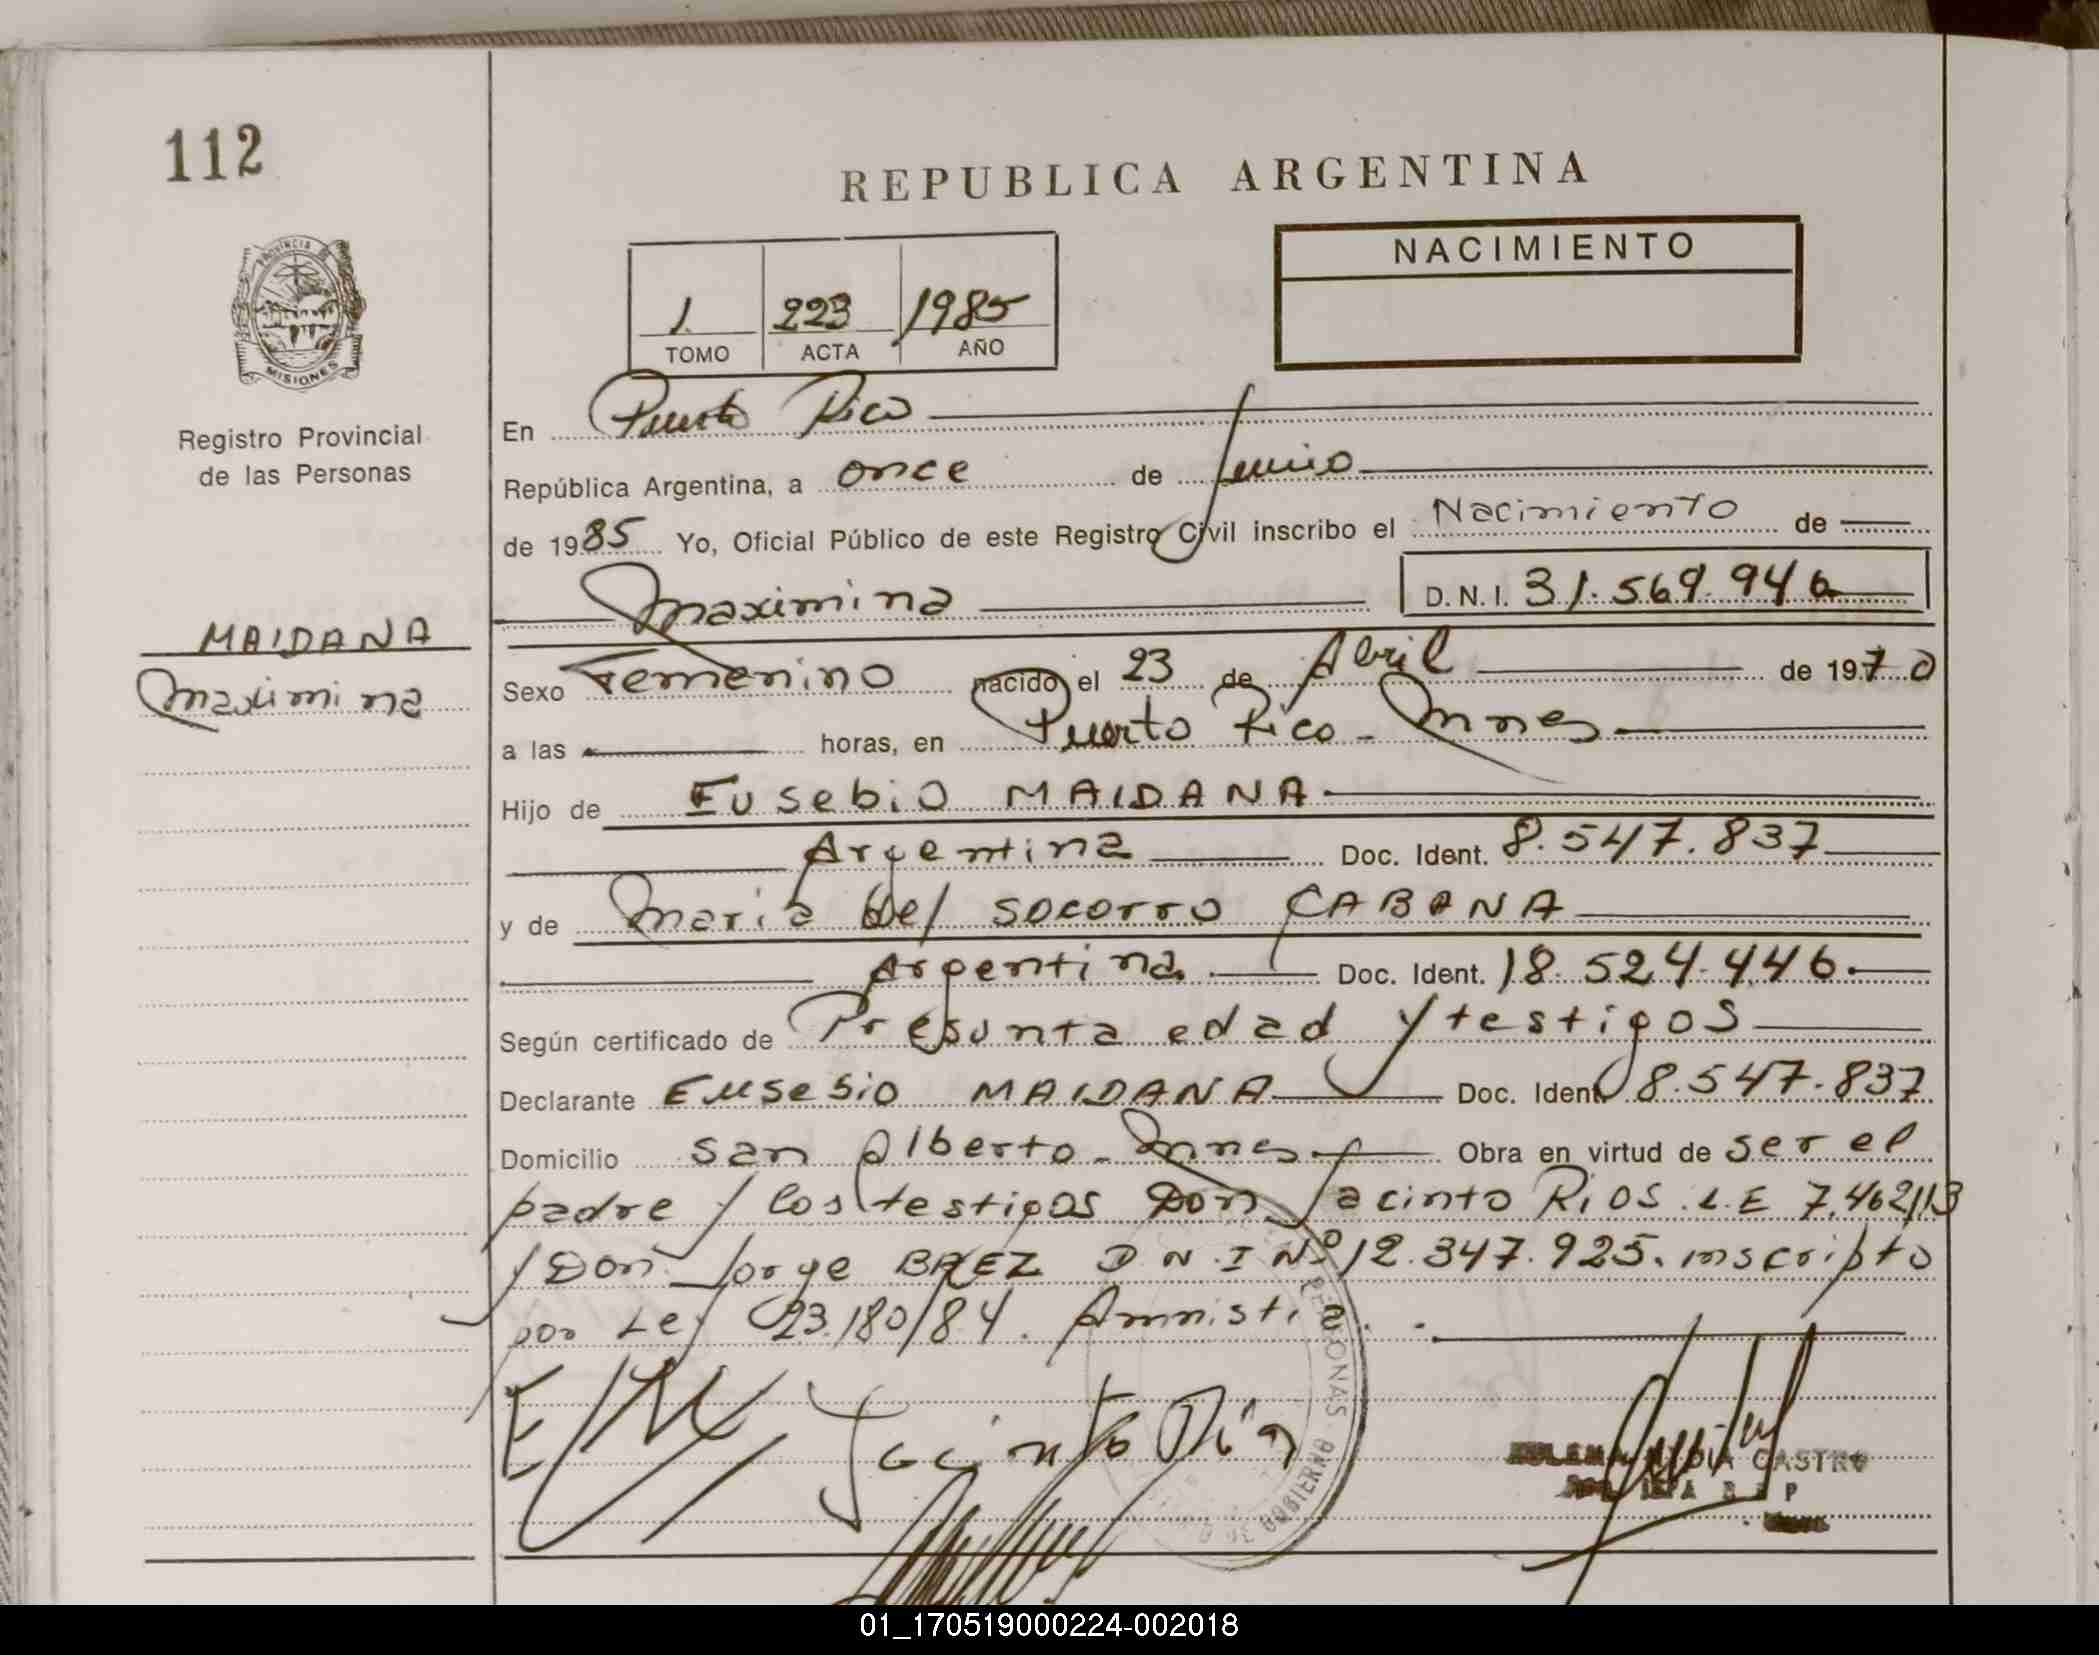 112
REPUBLICA ARGENTINA
PROVINCIA
MISIONES
Registro Provincial
de las Personas
MAIDANA
Maximina
1 223 1985
TOMO ACTA AÑO
NACIMIENTO
En Puerto Rico
República Argentina, a once de Junio
de 1985 Yo, Oficial Público de este Registro Civil inscribo el Nacimiento de
Maximina D.N.I. 31.569.946
Sexo Femenino nacido el 23 de Abril de 1970
a las horas, en Puerto Rico - Mnes
Hijo de Eusebio MAIDANA
Argentina Doc. Ident. 8.547.837
y de Maria del Socorro CABANA
Argentina Doc. Ident. 18.524.446
Según certificado de Presunta edad y testigos
Declarante Eusebio MAIDANA Doc. Ident 8.547.837
Domicilio San Alberto - Mnes Obra en virtud de ser el
padre y los testigos Don Jacinto RIOS L.E 7.462113
y Don Jorge BAEZ D.N.I Nº 12.347.925. inscripto
por Ley 23.180/84. Amnistia.
E/M Jacinto Rios
CASTRO
PERSONAS
DE GOBIERNO
01_170519000224-002018